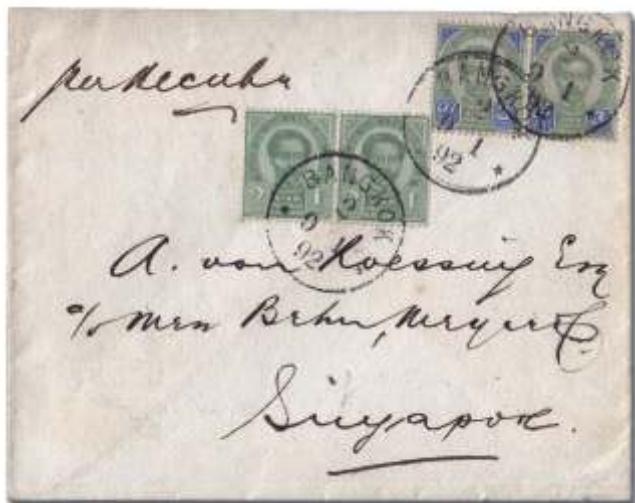 per Hecuba
BANGKOK
9
1
92
BANGKOK
9
1
92
BANGKOK
9
1
92
1
A. von Roessing Esq
c/o Mess Behn, Meyer & Co.
Singapore.